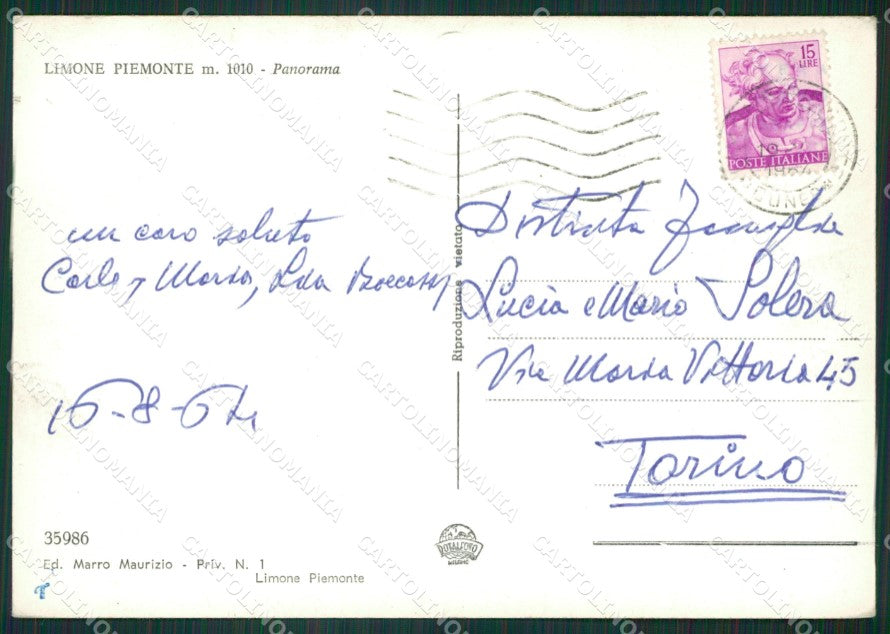 LIMONE PIEMONTE m. 1010 - Panorama
15
LIRE
POSTE ITALIANE
1964
un caro saluto
Carlo, Maria, Lda
16-8-64
Riproduzione vietata
Distinta Famiglia
Lucia e Mario Solera
Via Maria Vittoria 45
Torino
35986
Ed. Marro Maurizio - Priv. N. 1
Limone Piemonte
ROTALFOTO
MILANO
CARTOLINOMANIA